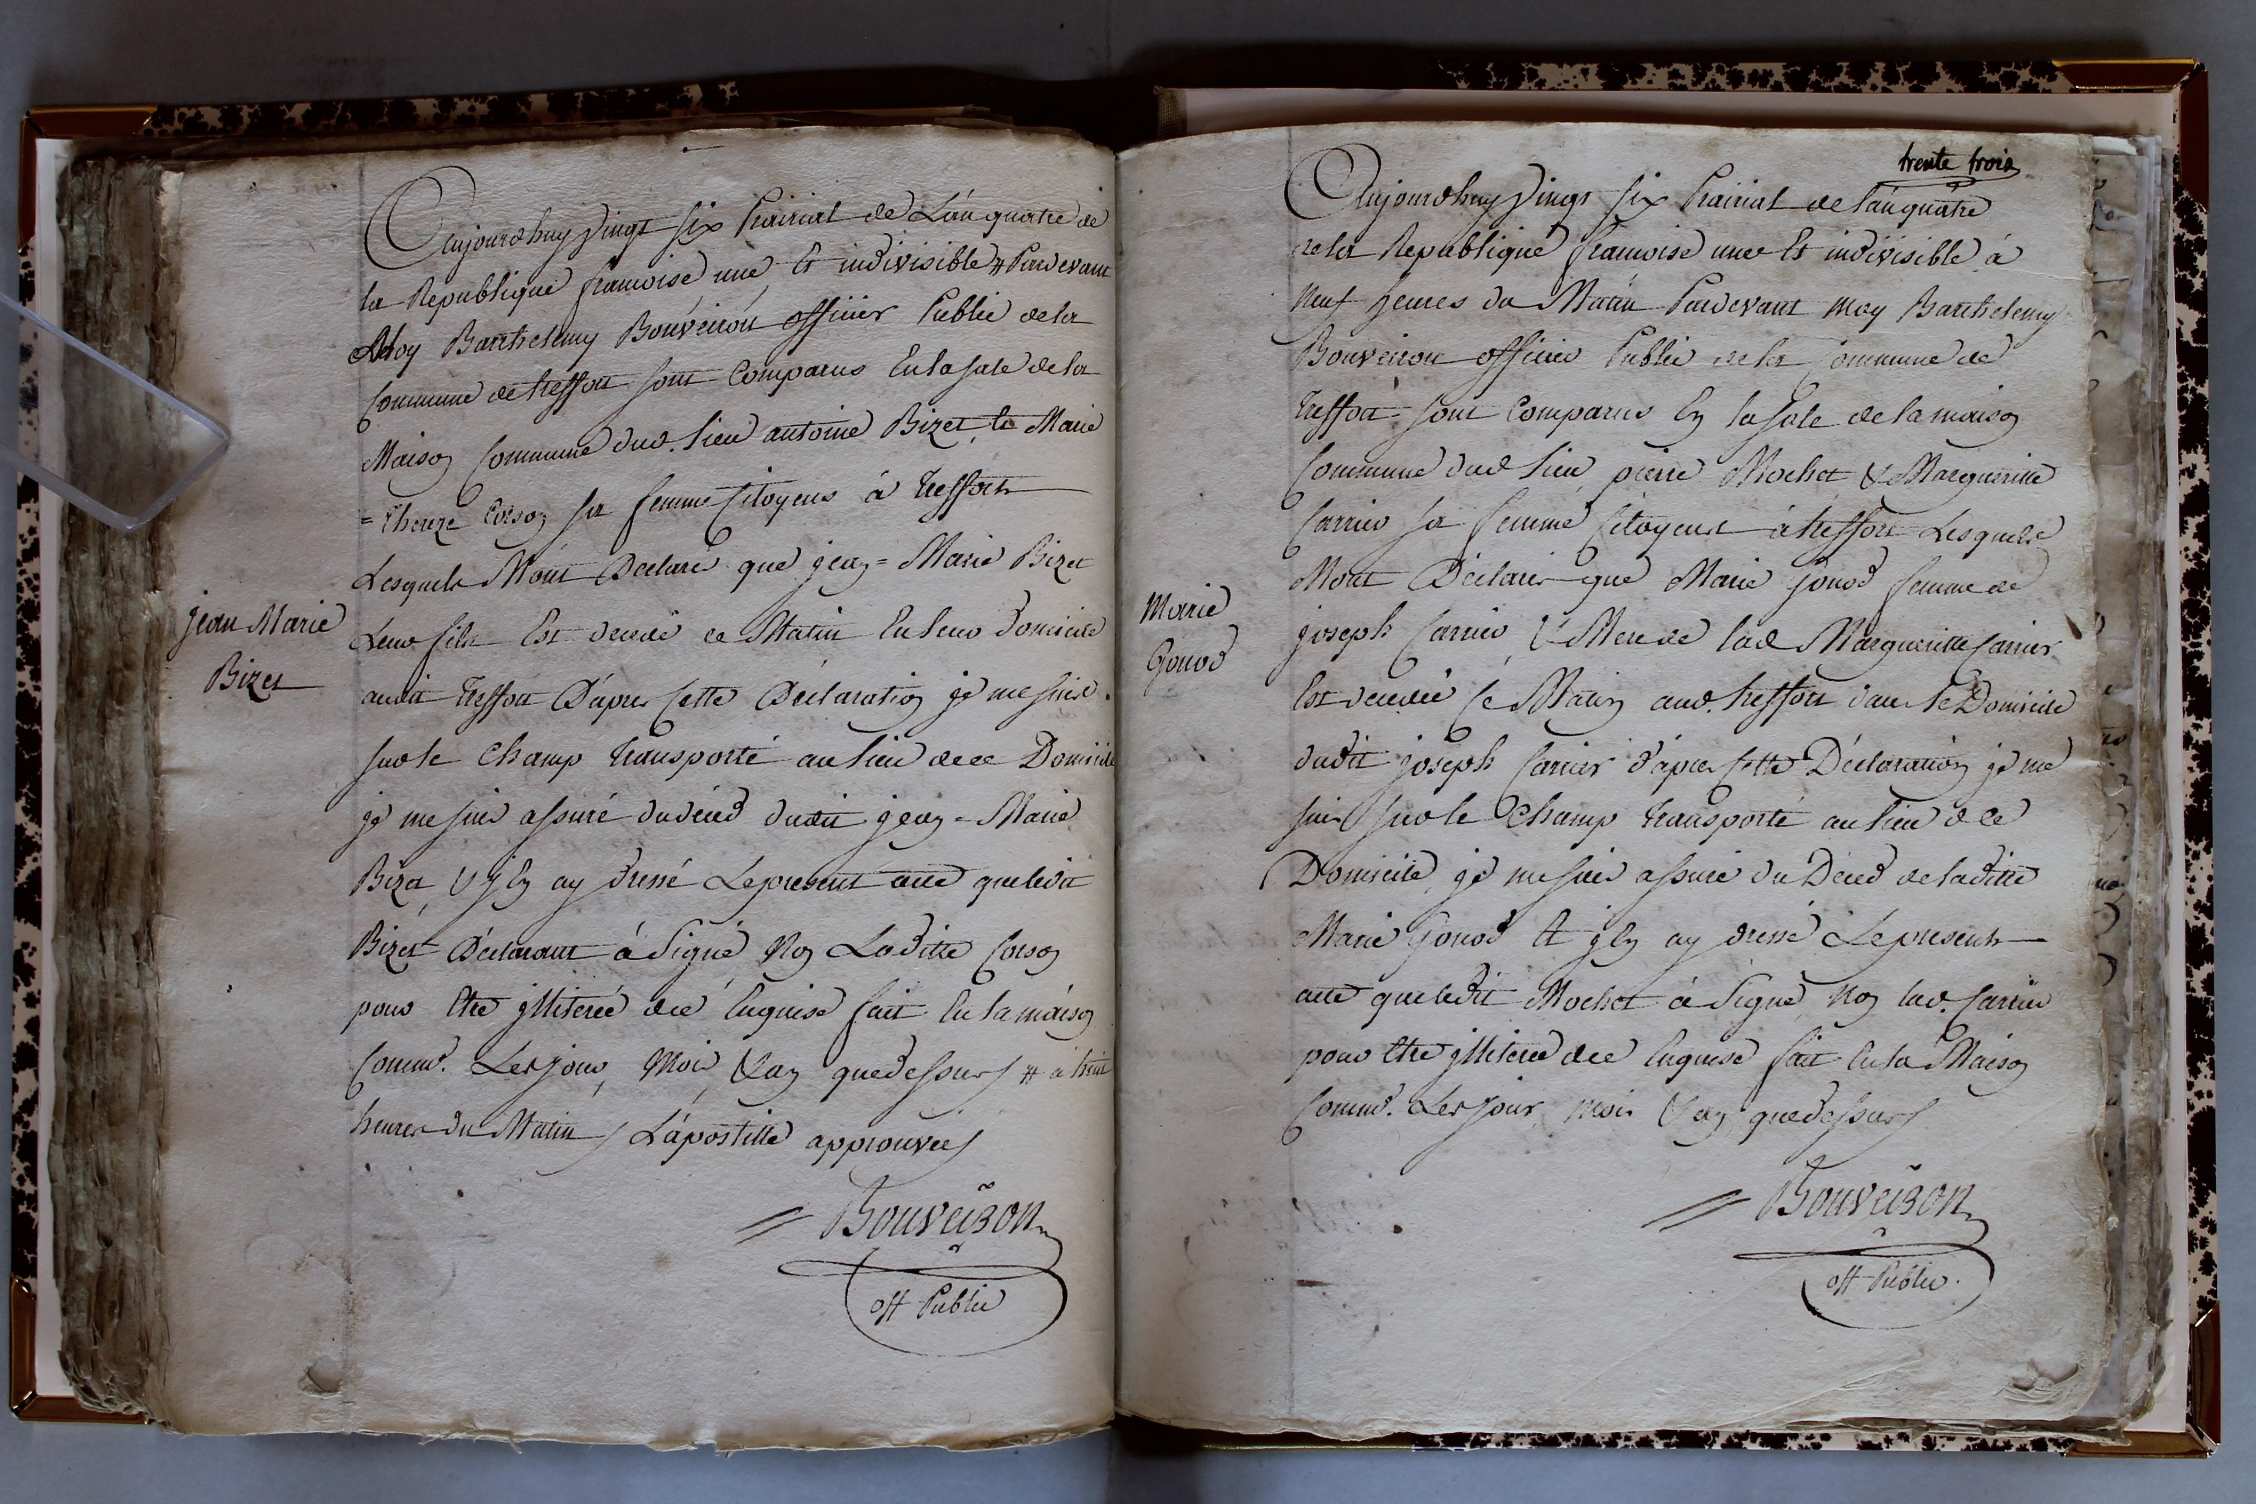 Aujourdhuy vingt six Prairial de L'an quatre de
la Republique francoise une Et indivisible # Pardevant
Moy Barthelemy Bouveiron officier Public de la
Commune de treffort sont Comparus En la sale de la
Maison Commune dud. lieu antoine Bizet, et Marie
= thereze Corson sa femme Citoyens à treffort
Lesquels M'ont Declaré que jean = Marie Bizet
Leur fils Est decedé ce Matin En leur domicile
audit treffort D'apres Cette Déclaration je me suis
sur le Champ transporté au lieu de ce Domicile
je me suis assuré du déces dudit jean = Marie
Bizet, & j'En ay dressé Le present acte que ledit
Bizet Déclarant à Signé Non Laditte Corson
pour Etre jlliterée de ce Enquise fait En la maison
Commu. Les jour, Mois, & an que dessus # à huit
heures du Matin L'apostille approuvée
Bouveiron
off Public
jean Marie
Bizet
trente trois
Aujourdhuy Vingt six Prairial de l'an quatre
de la Republique francoise une Et indivisible à
neuf heures du Matin Pardevant moy Barthelemy
Bouveiron officier Public de la Commune de
treffort sont Comparus En la sale de la maison
Commune dud lieu pierre Mochet & Margueritte
Carrier sa femme Citoyens à treffort Lesquels
M'ont Déclaré que Marie Gonod femme de
joseph Carrier & Mere de lad Margueritte Carrier
Est decedée Ce Matin aud. treffort dans le Domicile
dudit joseph Carrier d'apres Cette Déclaration je me
suis sur le Champ transporté au lieu de ce
Domicile je me suis assuré du Déces de laditte
Marie Gonod Et j'En ay dressé Le present
acte que ledit Mochet à Signé Non lad. Carrier
pour Etre jlliterée de ce Enquise fait En la Maison
Commu. Les jour mois & an que dessus
Bouveiron
off Public
Marie
Gonod